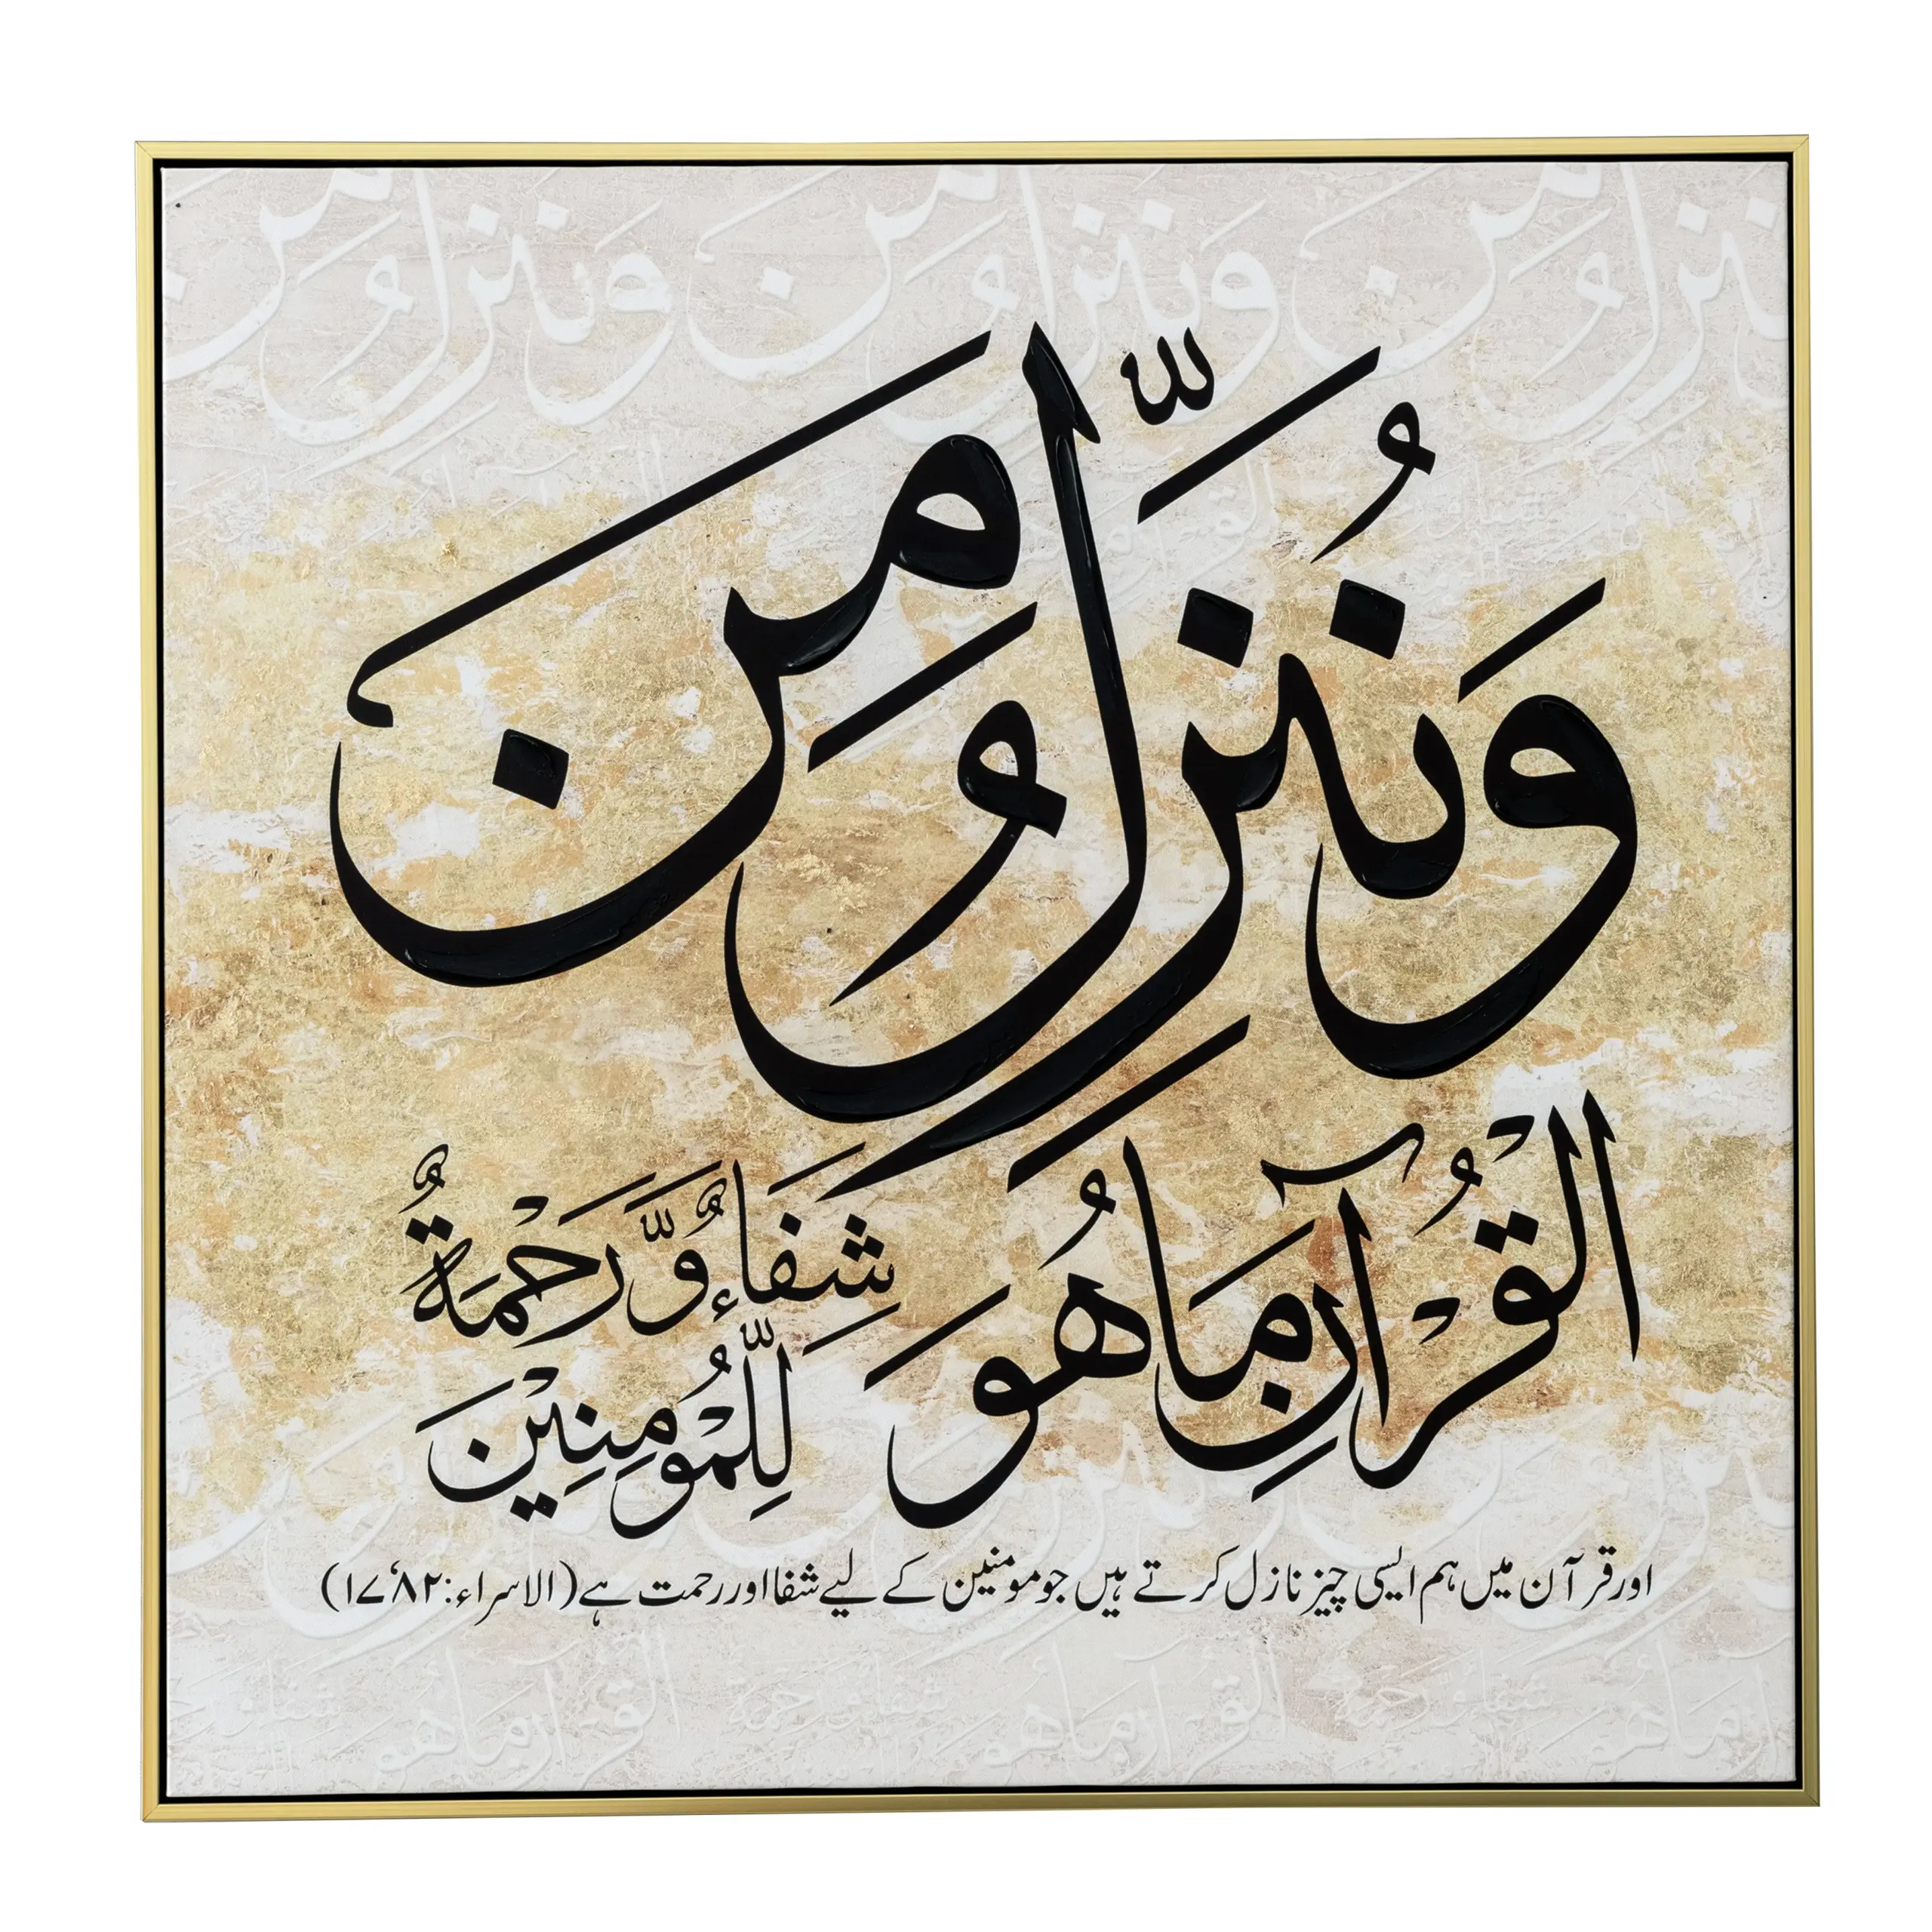 وَنُنَزِّلُ مِنَ
القُرْآنِ مَا هُوَ
شِفَاءٌ وَّرَحْمَةٌ
لِّلْمُؤْمِنِيْنَ
اور قرآن میں ہم ایسی چیز نازل کرتے ہیں جو مومنین کے لیے شفا اور رحمت ہے (الاسراء:۱۷،۸۲)